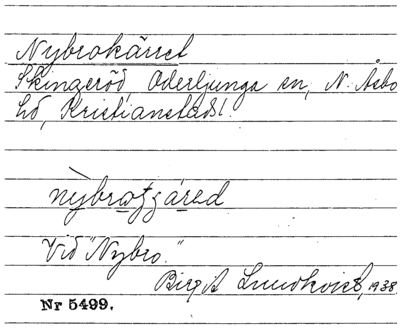 Nybrokärret
Skingeröd, Oderljunga sn, N. Åsbo
hd, Kristianstads l.
nybrotzäred
Vid "Nybro."
Birgit Lundkvist, 1938
Nr 5499.